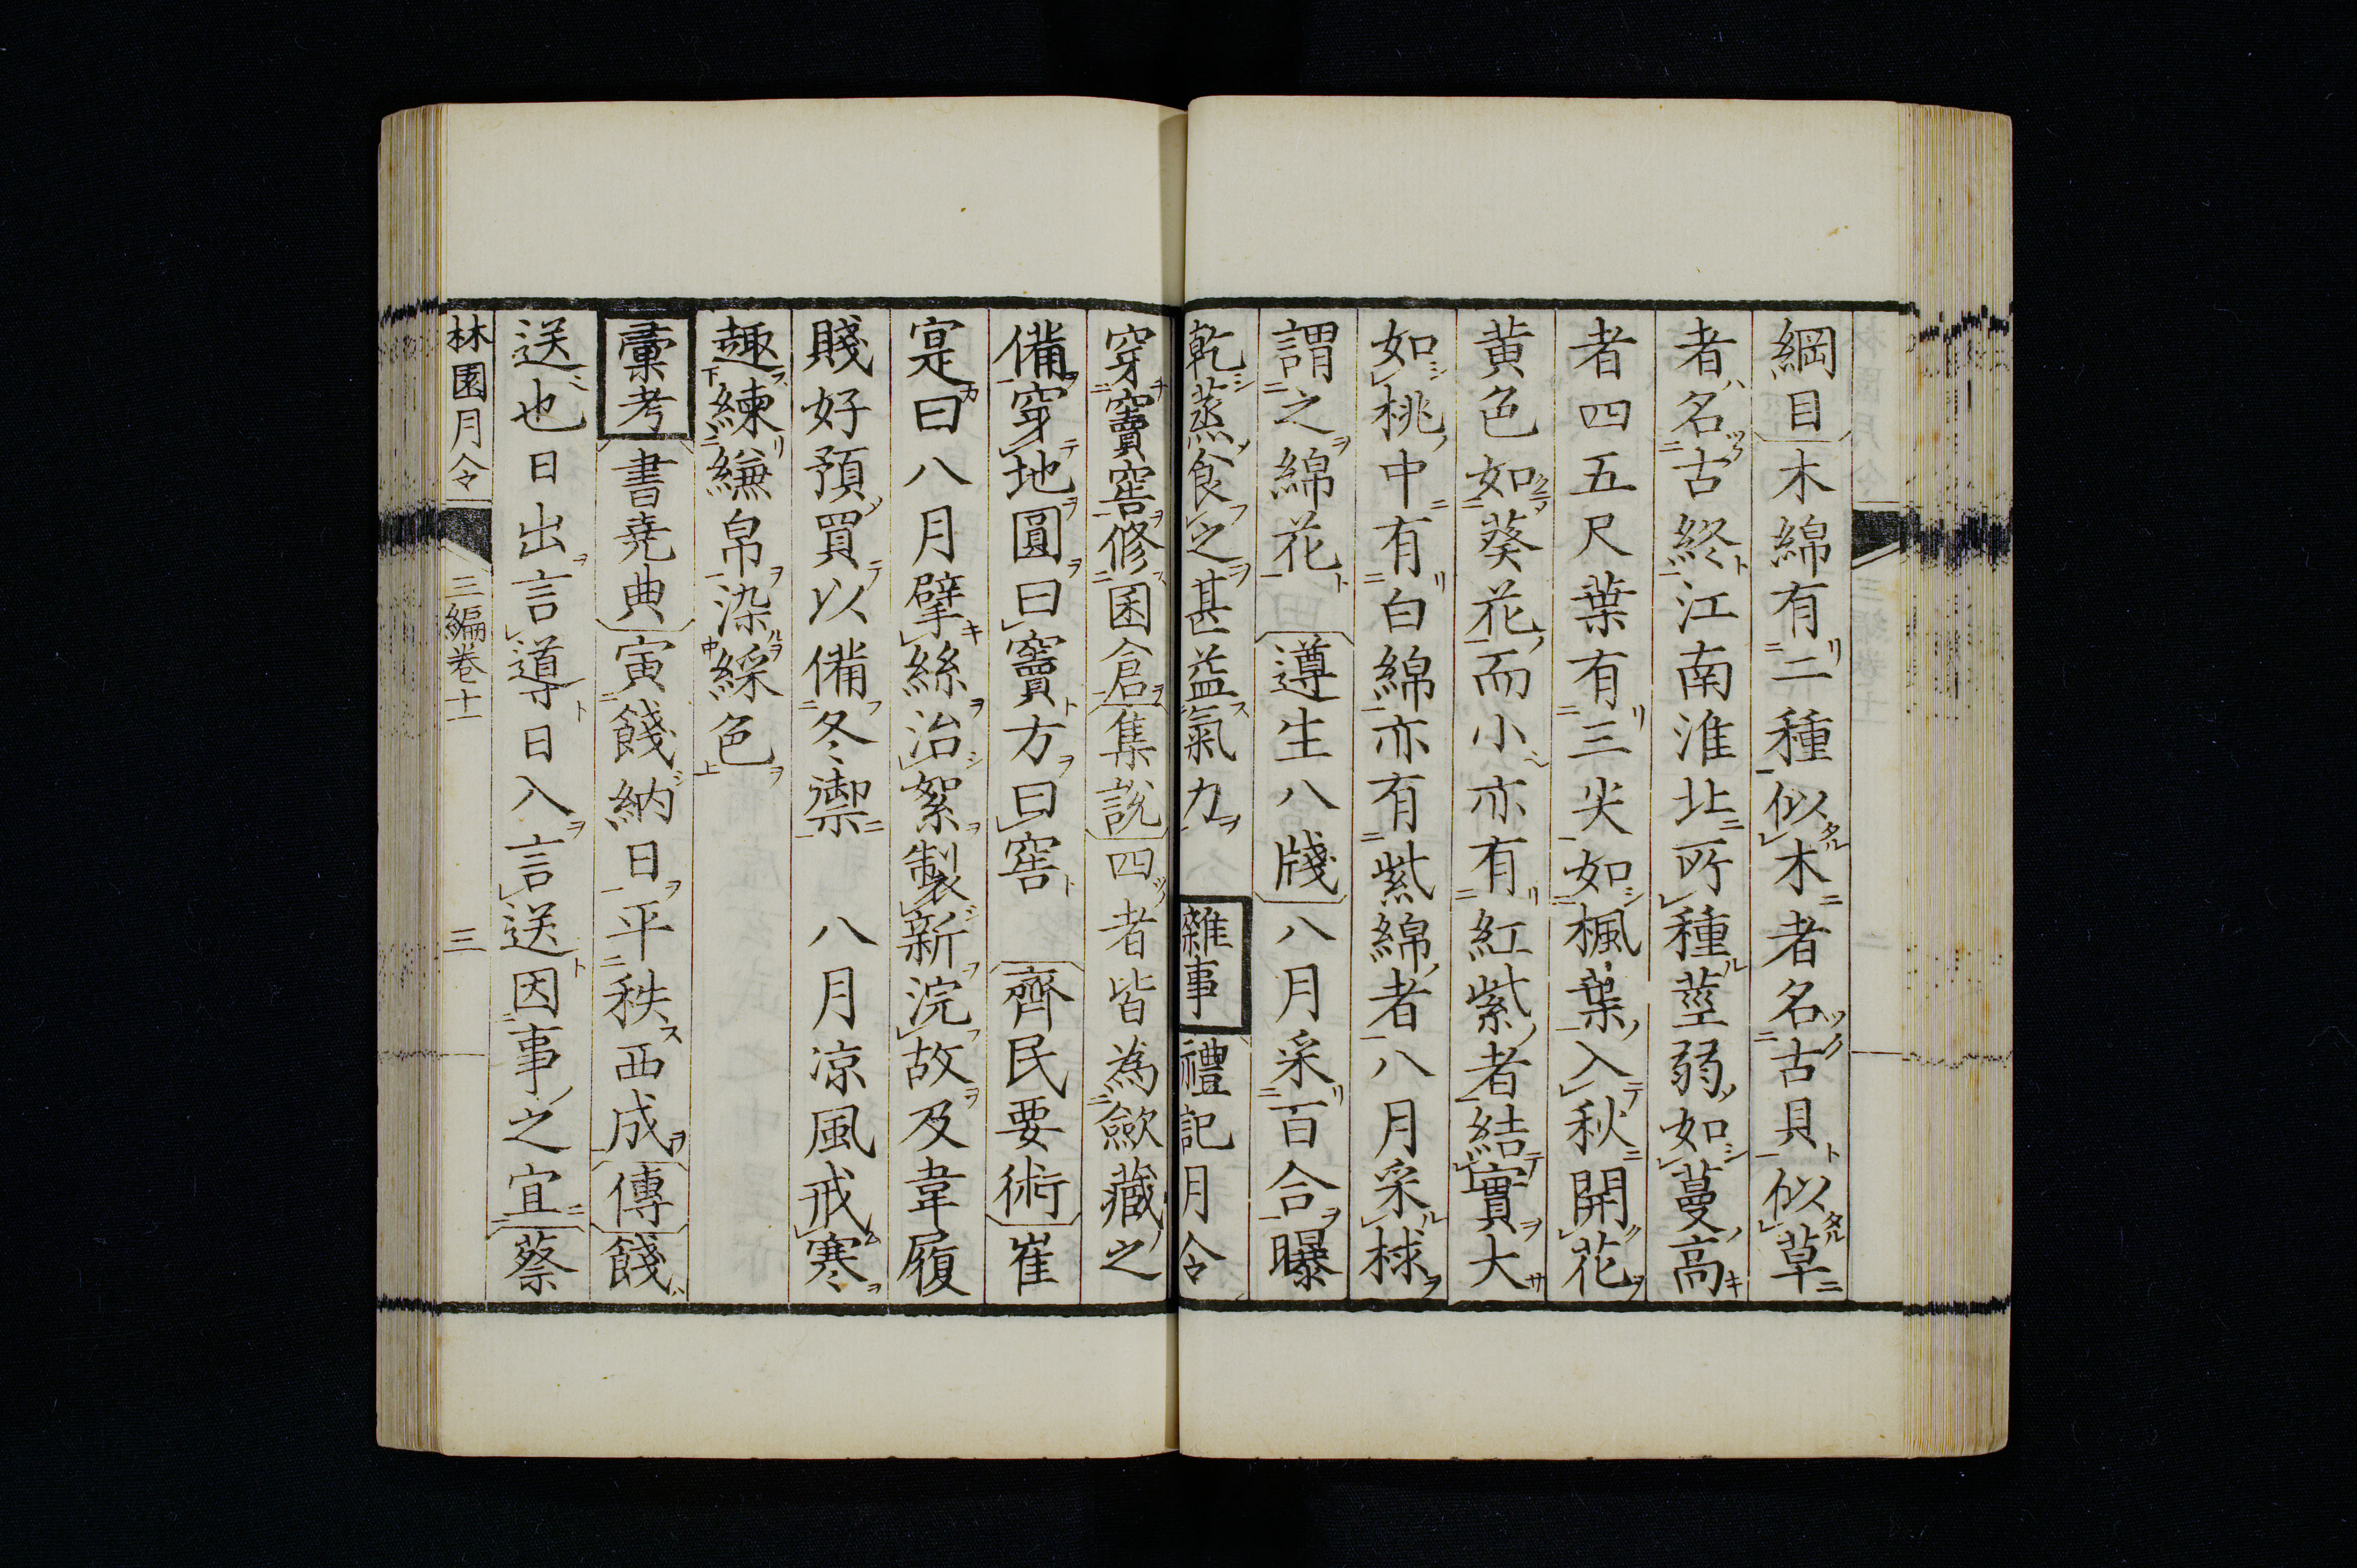 綱目木綿有二種似木者名古貝似草
者名古終江南淮北所種莖弱如蔓高
者四五尺葉有三尖如楓葉入秋開花
黄色如葵花而小亦有紅紫者結實大
如桃中有白綿亦有紫綿者八月采梂
謂之綿花遵生八牋八月采百合曝
乾蒸食之甚益氣力雜事禮記月令
穿竇窖修囷倉集說四者皆為歛藏之
備穿地圓曰竇方曰窖齊民要術崔
寔曰八月擘絲治絮製新浣故及韋履
賤好預買以備冬禦八月凉風戒寒
趣練縑帛染綵色
彙考書堯典寅餞納日平秩西成傳餞
送也日出言導日入言送因事之宜蔡
林園月令 三編卷十一 三